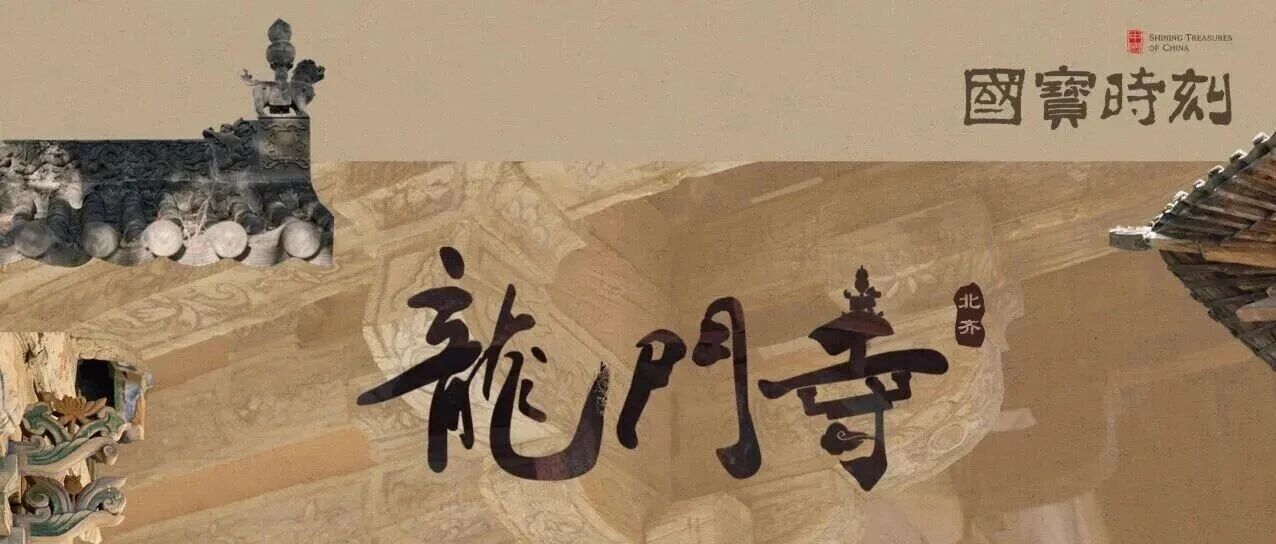 中國
SHINING TREASURES
OF CHINA
國寶時刻
龍門寺
北齐